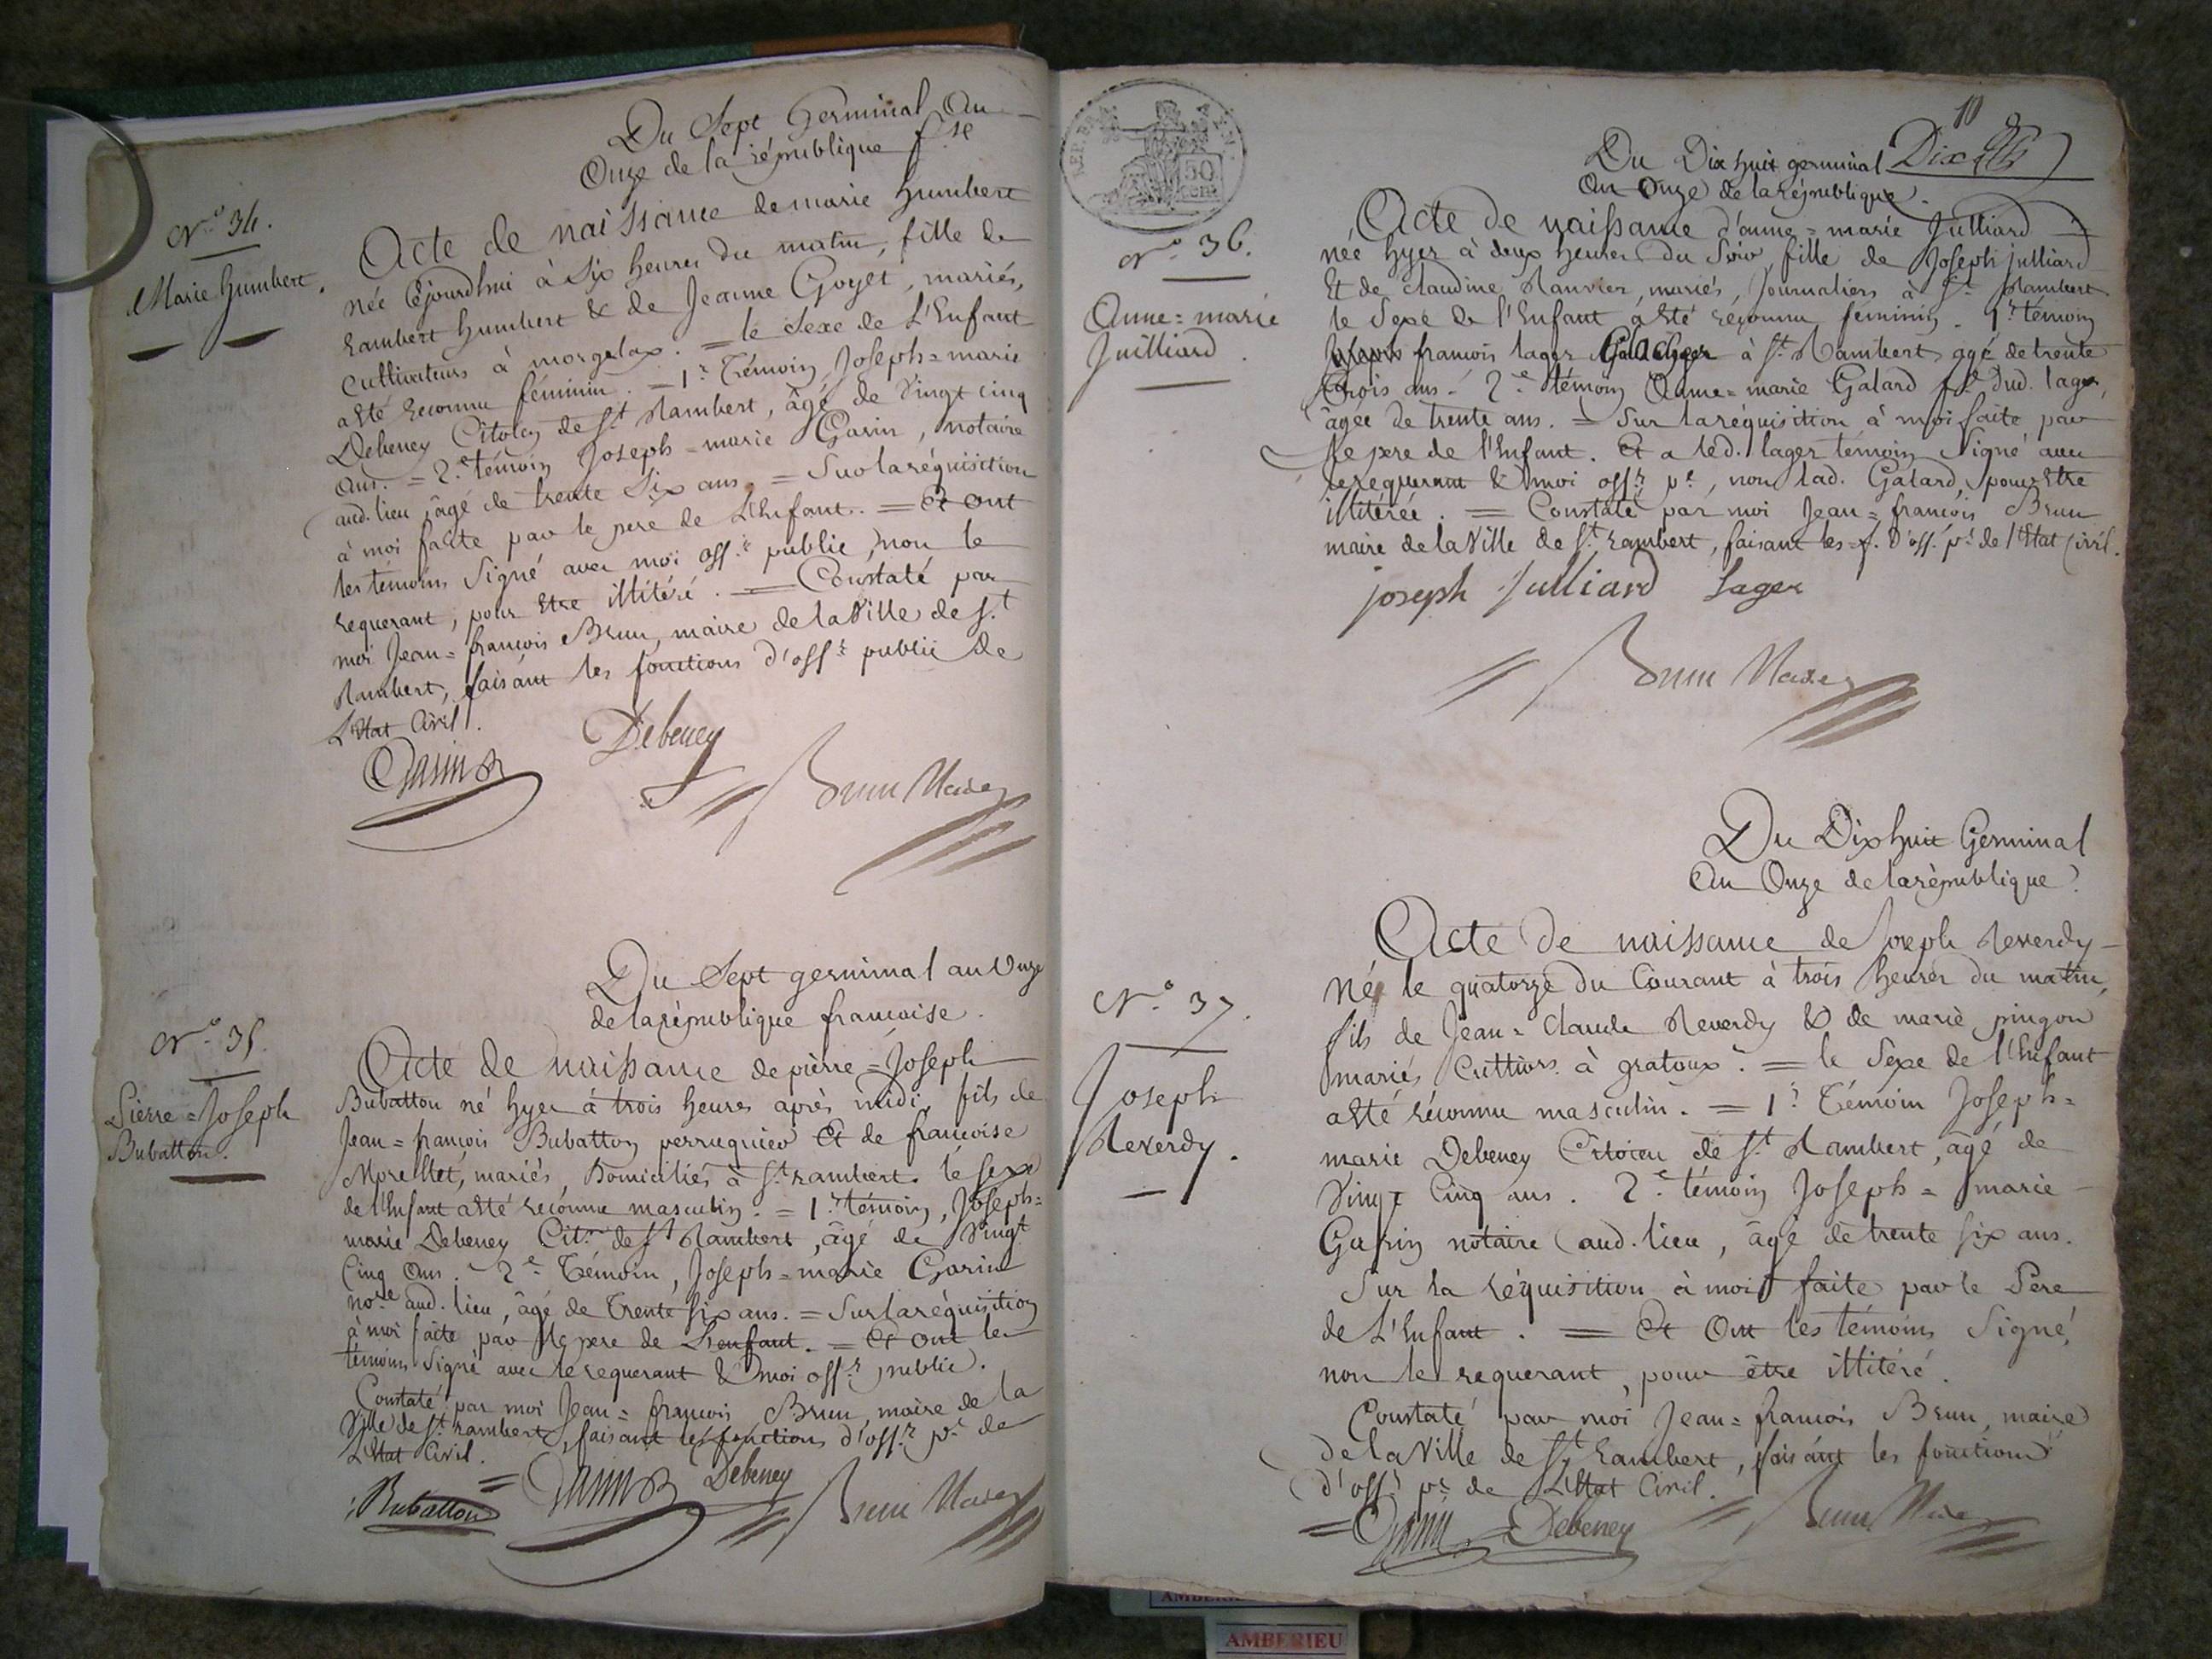 Du Sept Germinal An
Onze de la république f.se
N.o 34.
Marie Humbert.
Acte de naissance de marie humbert
née Cejourdhui à Six heures du matin, fille de
rambert humbert & de Jeanne Goyet, mariés,
Cultivateurs à morgelax. = le Sexe de L'Enfant
a Eté reconnu féminin. = 1.r Témoin Joseph=marie
Debeney Citoien de St Rambert, âgé de Vingt cinq
Ans. = 2.e témoin Joseph=marie Garin, notaire
aud. lieu, âgé de trente Six ans. = Sur la réquisition
à moi faite par le pere de L'Enfant. = Et ont
les témoins Signé avec moi off.r public, non le
requerant, pour Etre illitéré. = Constaté par
moi Jean=françois Brun, maire de la Ville de St
Rambert, faisant les fonctions d'off.r public de
L'Etat Civil.
Garin Debeney Brun Maire
Du Sept germinal an Onze
de la république francoise.
N.o 35.
Pierre=Joseph
Bubatton.
Acte de naissance de pierre=Joseph
Bubatton né hyer à trois heures après midi, fils de
Jean=françois Bubatton perruquier Et de francoise
Morellet, mariés, Domiciliés à St rambert. le sexe
de l'Enfant a Eté reconnu masculin. = 1.r témoin, Joseph=
marie Debeney Cit.n de St Rambert, âgé de Vingt
Cinq Ans. 2.e Témoin, Joseph=marie Garin
no.re aud. lieu, âgé de Trente six ans. = Sur la réquisition
à moi faite par le pere de L'enfant. = Et ont les
témoins Signé avec le requerant & moi off.r public.
Constaté par moi Jean=françois Brun, maire de la
Ville de St rambert, faisant les fonctions d'off.r p.c de
L'Etat Civil.
Bubatton Garin Debeney Brun Maire
REP. FRA.
50
cent
10
Dix
Du Dix huit germinal
An Onze de la république.
N.o 36.
Anne=marie
Juilliard.
Acte de naissance d'anne=marie Julliard
née hyer à deux heures du Soir, fille de Joseph julliard
Et de claudine Ranvier, mariés, Journaliers à St Rambert
le Sexe de l'Enfant a Eté reconnu féminin. 1.r témoin
françois lager à St Rambert, âgé de trente
trois ans. 2.e témoin Anne=marie Galard f.e dud. lager,
âgée de trente ans. = Sur la réquisition à moi faite par
le pere de l'Enfant. Et a led. lager témoin Signé avec
le requerant & moi off.r p.c, non lad. Galard, pour Etre
illitérée. = Constaté par moi Jean=françois Brun
maire de la Ville de St rambert, faisant les f. d'off. p.c de l'Etat Civil.
joseph Julliard Lager
Brun Maire
Du Dix huit Germinal
An Onze de la république.
N.o 37.
Joseph
Reverdy.
Acte de naissance de Joseph Reverdy
Né le quatorze du Courant à trois heures du matin,
fils de Jean=Claude Reverdy & de marie pingon
mariés, Cultiv.rs à gratoux. = le Sexe de l'Enfant
a Eté réconnu masculin. = 1.r Témoin Joseph=
marie Debeney Citoien de St Rambert, âgé de
Vingt Cinq ans. 2.e témoin Joseph=marie
Garin notaire aud. lieu, âgé de trente six ans.
Sur la réquisition à moi faite par le Pere
de L'Enfant. = Et Ont les témoins Signé,
non le requerant, pour être illitéré.
Constaté par moi Jean=françois Brun, maire
de la Ville de St Rambert, faisant les fonctions
d'off.r p.c de L'Etat Civil.
Garin Debeney Brun Maire
AMBERIEU